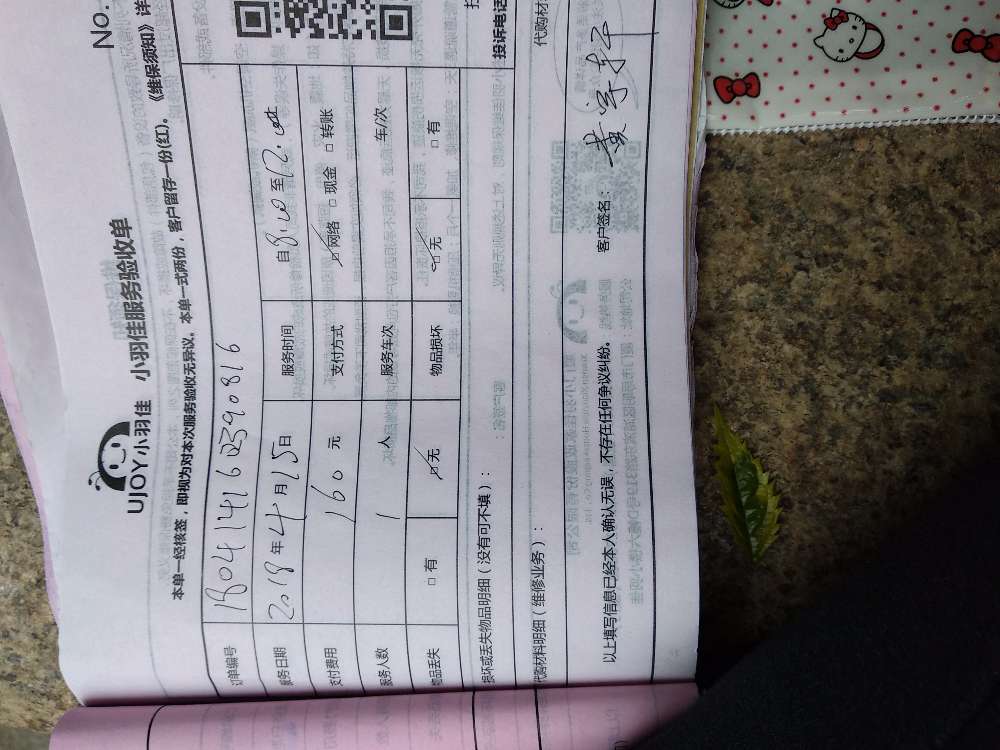 No.
UJOY小羽佳 小羽佳服务验收单
本单一经核签，即视为对本次服务验收无异议。本单一式两份，客户留存一份(红)。《维保须知》详
订单编号 180414162390816
服务日期 2018年4月15日 服务时间 自8:00至12:00
支付费用 160元 支付方式 ☑网络 □现金 □转账
服务人数 1人 服务车次 车/次
物品丢失 □有 ☑无 物品损坏 ☑无 □有
损坏或丢失物品明细（没有可不填）： 投诉电话
代购材料明细（维修业务）： 代购材
以上填写信息已经本人确认无误，不存在任何争议纠纷。 客户签名：